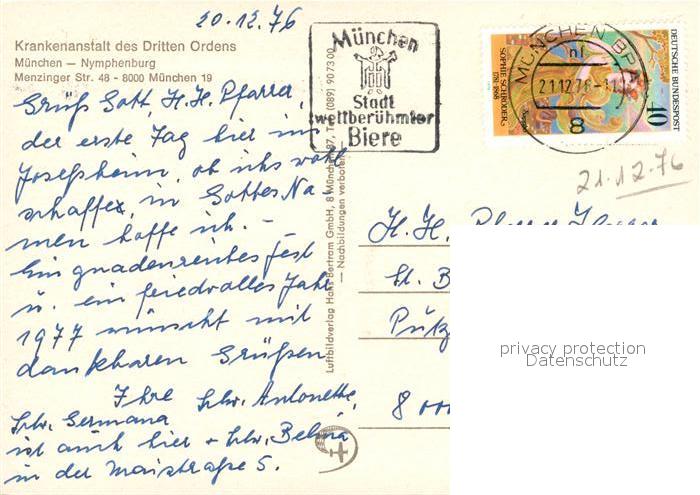 20.12.76
Krankenanstalt des Dritten Ordens
München — Nymphenburg
Menzinger Str. 48 - 8000 München 19
Grüß Gott, H. H. Pfarrer,
der erste Tag hier im
Josefsheim, ob ichs wohl
schaffe, in Gottes Na-
men hoffe ich. –
Ein gnadenreiches Fest
u. ein friedvolles Jahr
1977 wünscht mit
dankbaren Grüßen
Ihre Schw. Antonette,
Schw. Germana
ist auch hier + Schw. Belina
in der Maistraße 5.
Luftbildverlag Hans Bertram GmbH, 8 München 87, Tel. (089) 907300
— Nachbildungen verboten —
München
Stadt
weltberühmter
Biere
MÜNCHEN
21.12.76
8
SOPHIE SCHRÖDER
1781-1868
DEUTSCHE BUNDESPOST
40
21.12.76
H. H.
St. B
Pütz
8000
privacy protection
Datenschutz